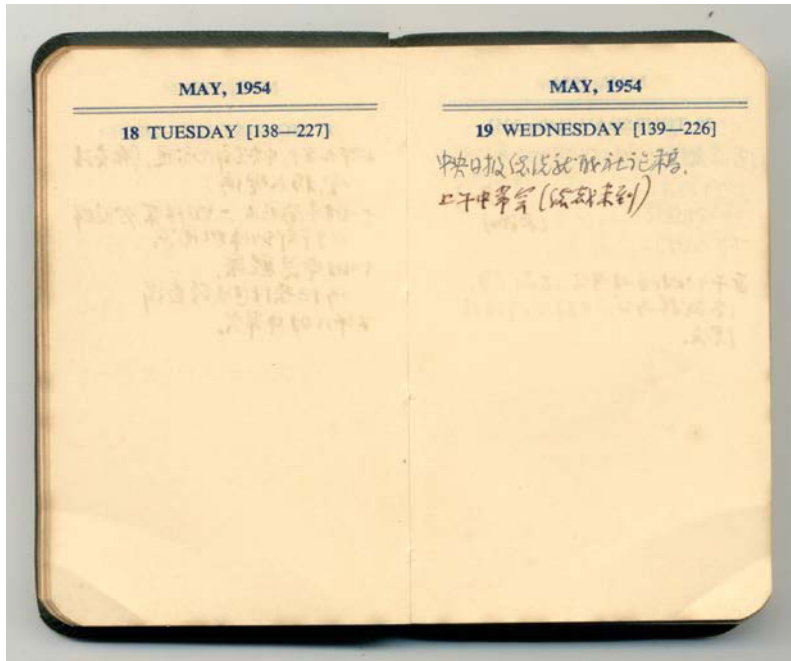 MAY, 1954
18 TUESDAY [138—227]
MAY, 1954
19 WEDNESDAY [139—226]
中央日报總統就職社论稿.
上午中常会(總裁未到)